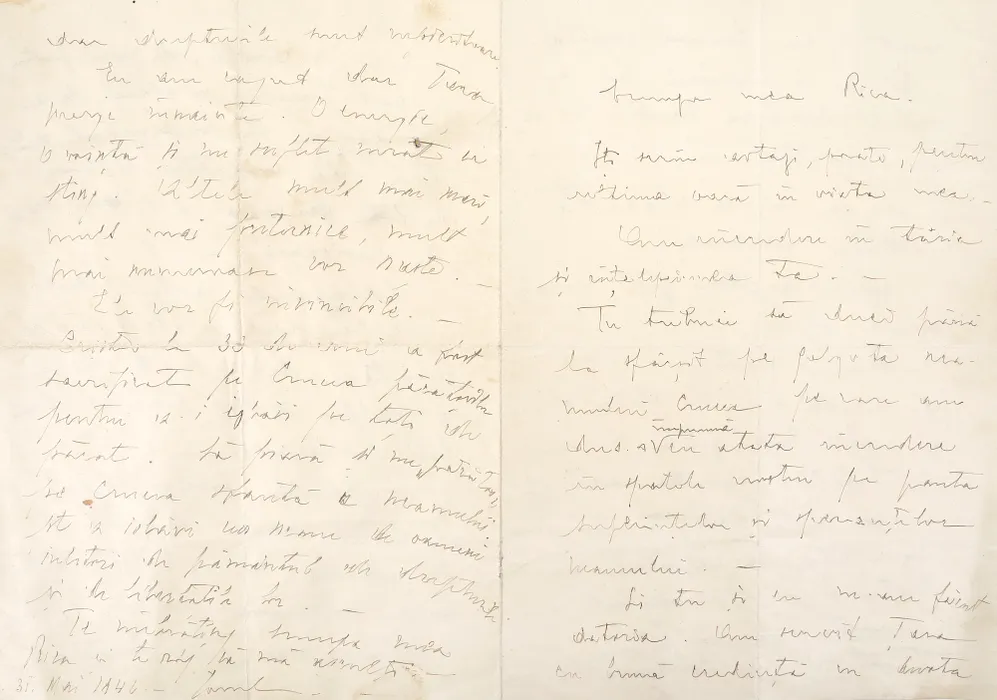 Scumpa mea Rica.
Îți scriu astăzi, poate, pentru
ultima oară în viața mea. -
Am încredere în tăria
și înțelepciunea Ta. -
Tu trebuie să duci până
la sfârșit pe Golgota nea-
mului Crucea pe care am
împreună
dus-o atâta încredere
în spatele nostru pe panta
suferințelor și speranțelor
neamului. -
Și tu și eu ne-am făcut
datoria. Am servit Țara
cu bună credință în
dar drepturile sunt
Eu am căzut dar Țara
merge înainte. O energie,
o voință și un suflet curat se
sting. Altele mult mai mari,
mult mai puternice, mult
mai numeroase vor naște. -
Ele vor fi invincibile. -
Cristos la 33 de ani a fost
sacrificat pe Crucea păcatelor
pentru a-i izbăvi pe toți de
păcat. Să piară și
pe Crucea sfântă a neamului
izbăvi un neam de oameni
iubitori de pământul de drepturile
și de libertatea lor. -
Te îmbrățișez scumpa mea
Rica și te rog să mă asculți. -
31. Mai 1946. -